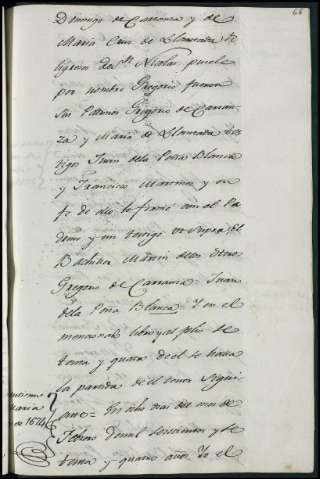 68
Domingo de Carranza y de
Maria Cruz de Llanteada fe
ligeses de Sn Nicolas pusele
por nombre Gregorio fueron
sus Padrinos Gregorio de Carran
za y Maria de Llanteada tes
tigos Juan dela Pena Blanca
y Francisco Martinez y en
fe de ello lo firmé con el Pa
drino y un testigo ut supra, el
Bachiller Martin delos Heros
Gregorio de Carranza Juan
dela Peña Blanca Y en el
mencionado libro y al folio de
treinta y quatro de el se halla
la partida de el tenor siguien
te = En ocho dias del mes de
Febrero de mil seiscientos y se
tenta y quatro años Yo el
Maria
de 1674